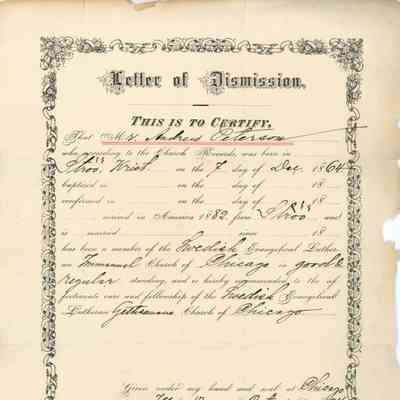 Letter of Dismission.
THIS IS TO CERTIFY,
That Mr. Andrew Peterson
who according to the Church Records, was born in
on the 7 day of Dec. 1864
baptized in on the day of 18
confirmed in on the day of 18
arrived in America 1882 from and
is married since 18
has been a member of the Swedish Evangelical Luther-
an Immanuel Church of Chicago in good &
regular standing, and is hereby recommended to the af-
fectionate care and fellowship of the Swedish Evangelical
Lutheran Gethsemane Church of Chicago
Given under my hand and seal at Chicago